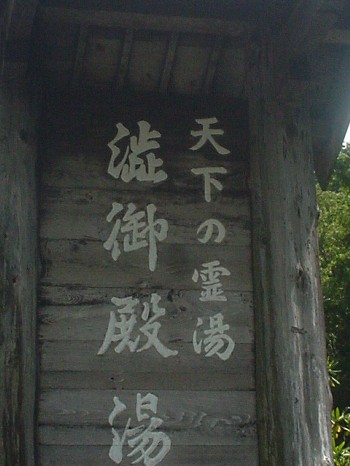 天下の霊湯
澁御殿湯